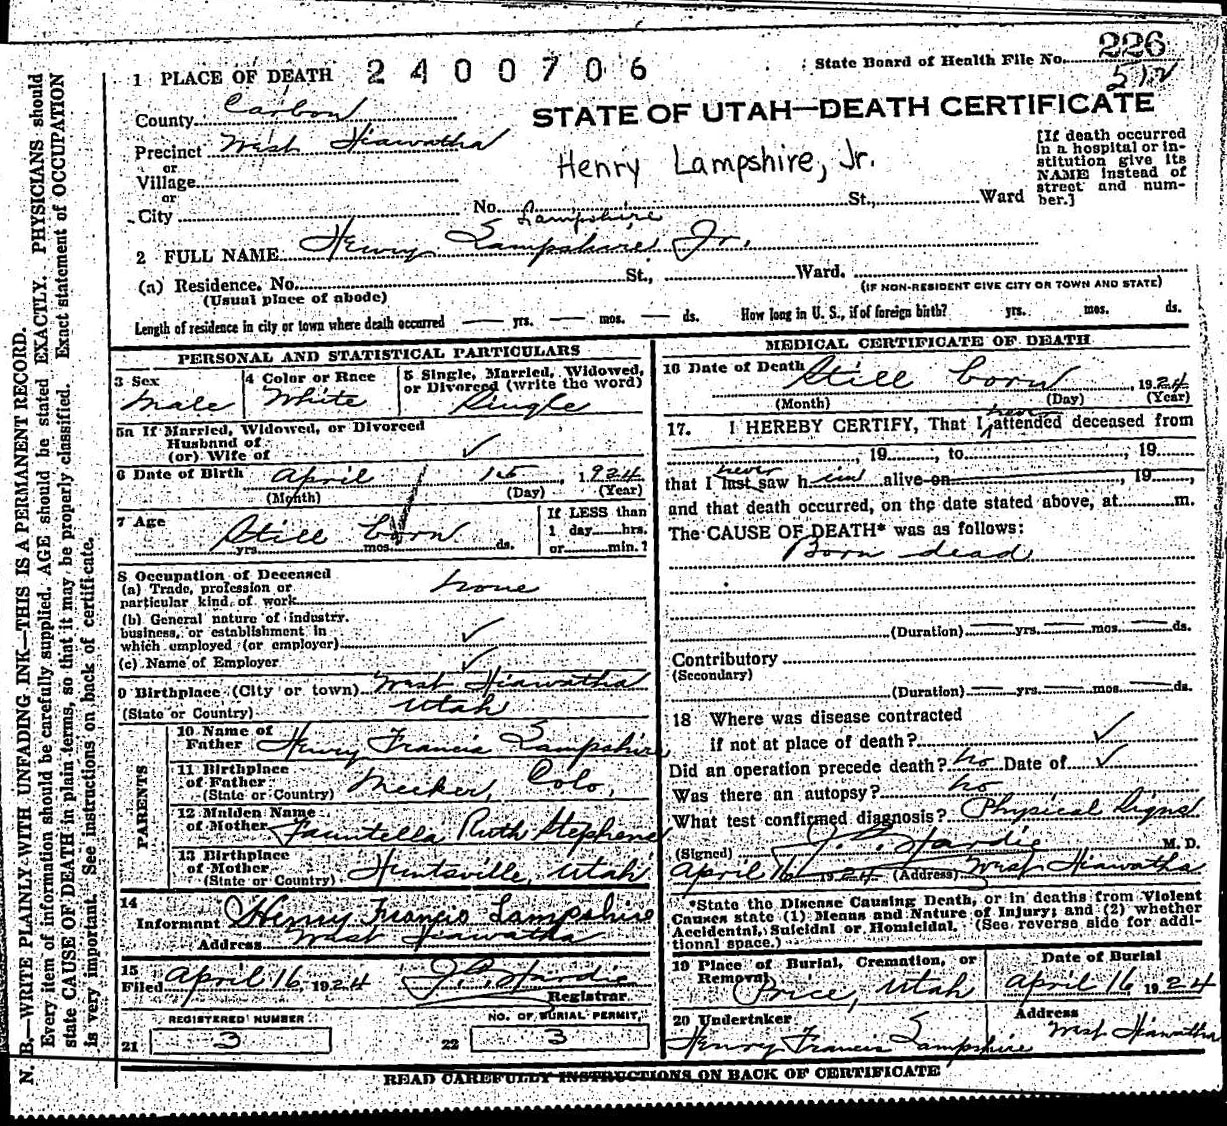 226
State Board of Health File No.
512
1 PLACE OF DEATH 2400706
County Carbon
STATE OF UTAH—DEATH CERTIFICATE
Precinct West Hiawatha
or
Village
or
City
Henry Lampshire, Jr.
No. St., Ward
[If death occurred
in a hospital or in-
stitution give its
NAME instead of
street and num-
ber.]
Lampshire
2 FULL NAME Henry Lampshire Jr.
(a) Residence. No. St., Ward.
(Usual place of abode)
(IF NON-RESIDENT GIVE CITY OR TOWN AND STATE)
Length of residence in city or town where death occurred — yrs. — mos. — ds. How long in U. S., if of foreign birth? yrs. mos. ds.
PERSONAL AND STATISTICAL PARTICULARS
3 Sex
Male
4 Color or Race
White
5 Single, Married, Widowed,
or Divorced (write the word)
Single
5a If Married, Widowed, or Divorced
Husband of
(or) Wife of ✓
6 Date of Birth April 15, 1924
(Month) (Day) (Year)
7 Age
Still born
yrs. mos. ds.
If LESS than
1 day hrs.
or min.?
8 Occupation of Deceased
(a) Trade, profession or
particular kind of work none
(b) General nature of industry,
business, or establishment in
which employed (or employer) ✓
(c) Name of Employer ✓
9 Birthplace (City or town) West Hiawatha
(State or Country) Utah
PARENTS
10 Name of
Father Henry Francis Lampshire
11 Birthplace
of Father
(State or Country) Meeker, Colo,
12 Maiden Name
of Mother Fauntella Ruth Stephens
13 Birthplace
of Mother
(State or Country) Huntsville, Utah
14
Informant Henry Francis Lampshire
Address West Hiawatha
15
Filed April 16 1924 J. P. Hardie
Registrar.
REGISTERED NUMBER
21 3
NO. OF BURIAL PERMIT,
22 3
MEDICAL CERTIFICATE OF DEATH
16 Date of Death Still born, 1924
(Month) (Day) (Year)
never
17. I HEREBY CERTIFY, That I attended deceased from
, 19 , to , 19
never
that I last saw him alive on , 19 ,
and that death occurred, on the date stated above, at m.
The CAUSE OF DEATH* was as follows:
Born dead
(Duration) — yrs. — mos. — ds.
Contributory
(Secondary)
(Duration) — yrs. — mos. — ds.
18 Where was disease contracted
if not at place of death? ✓
Did an operation precede death? no Date of ✓
Was there an autopsy? no
What test confirmed diagnosis? Physical Signs
(Signed) J. P. Hardie M. D.
April 16 1924 (Address) West Hiawatha
*State the Disease Causing Death, or in deaths from Violent
Causes state (1) Means and Nature of Injury; and (2) whether
Accidental, Suicidal or Homicidal. (See reverse side for addi-
tional space.)
19 Place of Burial, Cremation, or
Removal
Price, Utah
Date of Burial
April 16 1924
20 Undertaker
Henry Francis Lampshire
Address
West Hiawatha
READ CAREFULLY INSTRUCTIONS ON BACK OF CERTIFICATE
N. B.—WRITE PLAINLY WITH UNFADING INK—THIS IS A PERMANENT RECORD.
Every item of information should be carefully supplied. AGE should be stated EXACTLY. PHYSICIANS should
state CAUSE OF DEATH in plain terms, so that it may be properly classified. Exact statement of OCCUPATION
is very important. See instructions on back of certificate.